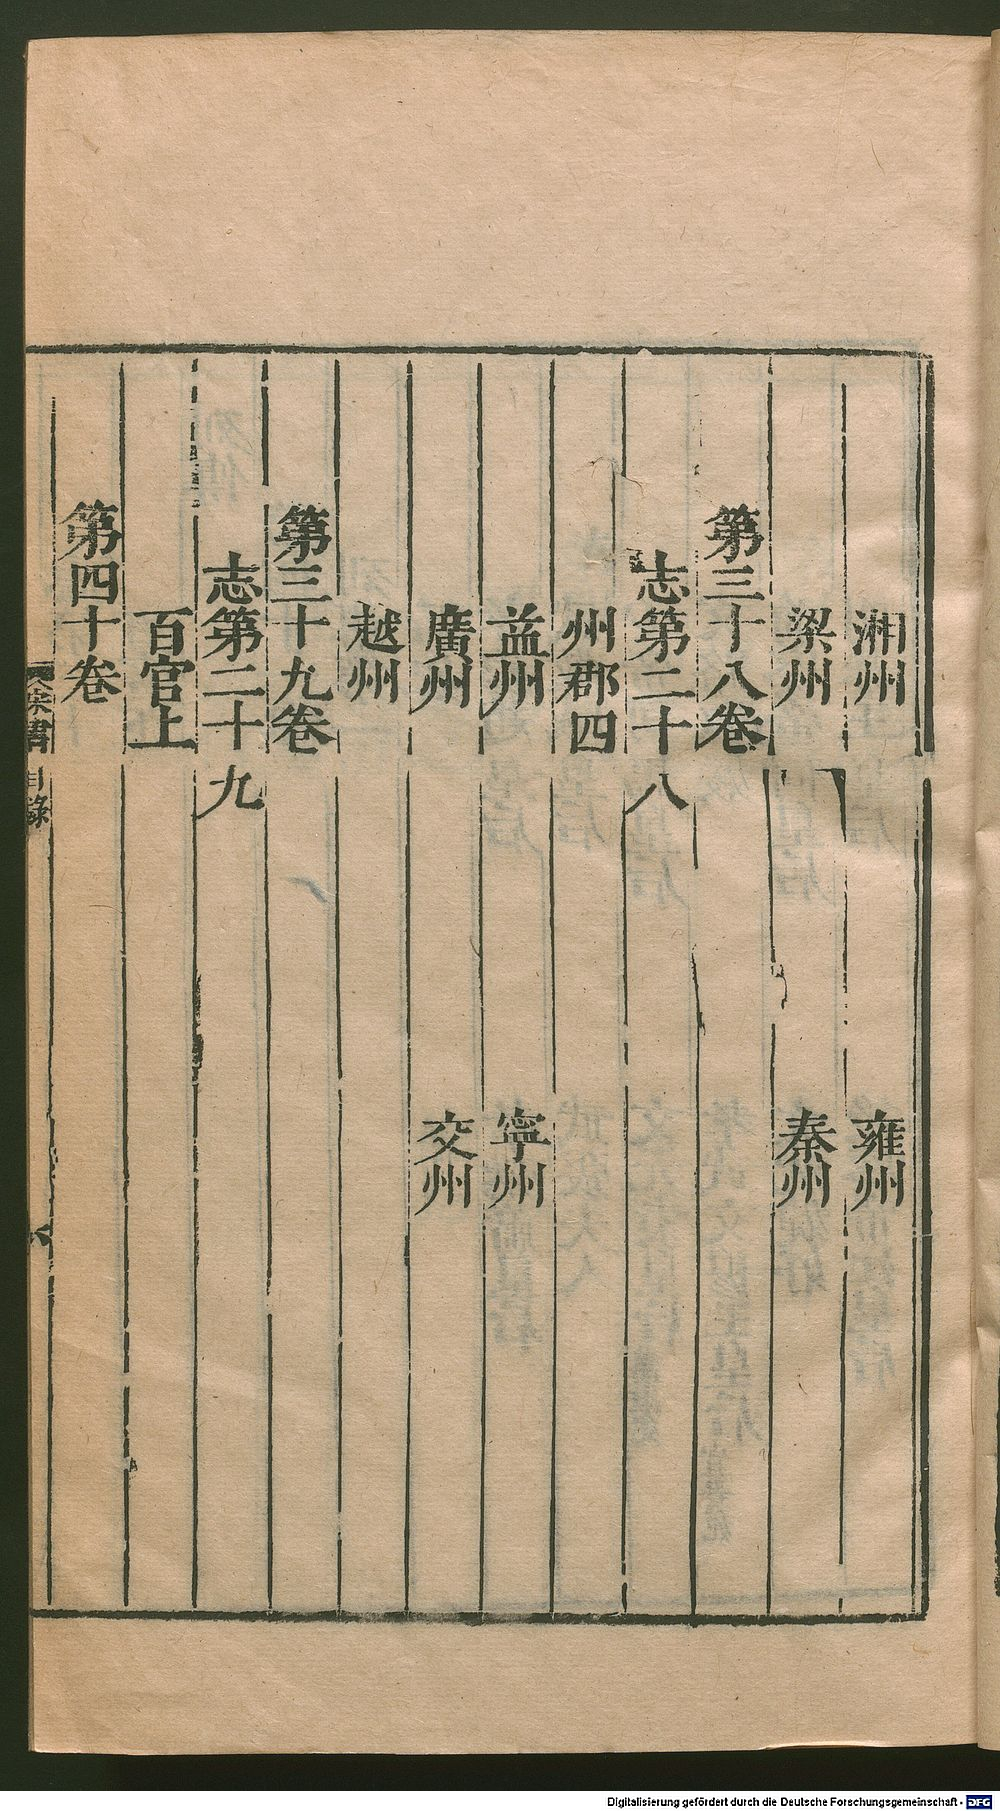 湘州 雍州
梁州 秦州
第三十八卷
志第二十八
州郡四
益州 寧州
廣州 交州
越州
第三十九卷
志第二十九
百官上
第四十卷
宋書 目錄
Digitalisierung gefördert durch die Deutsche Forschungsgemeinschaft - DFG